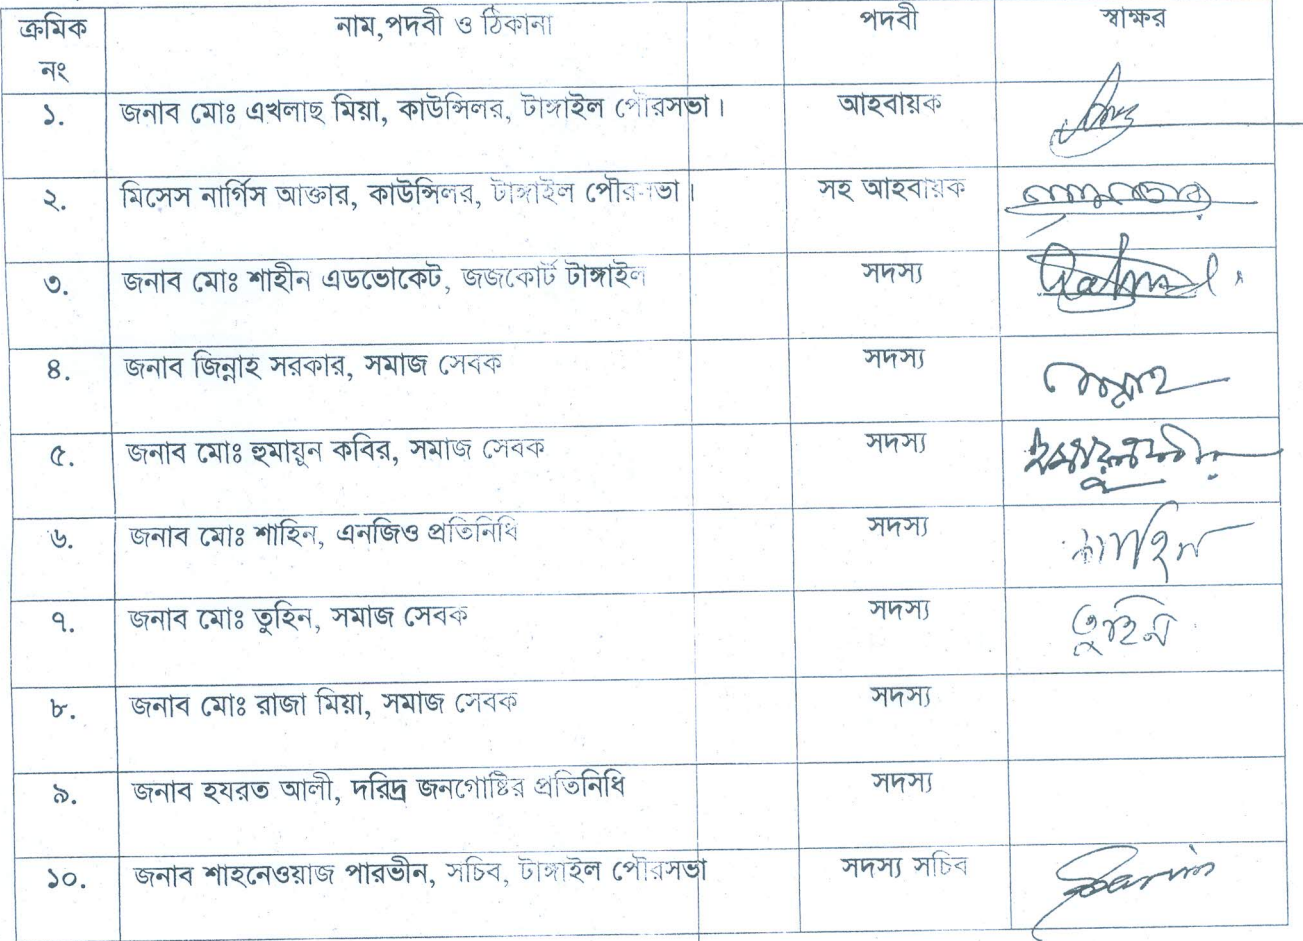 ক্রমিক নাম,পদবী ও ঠিকানা পদবী স্বাক্ষর
নং
১. জনাব মোঃ এখলাছ মিয়া, কাউন্সিলর, টাঙ্গাইল পৌরসভা। আহবায়ক
২. মিসেস নার্গিস আক্তার, কাউন্সিলর, টাঙ্গাইল পৌরসভা। সহ আহবায়ক
৩. জনাব মোঃ শাহীন এডভোকেট, জজকোর্ট টাঙ্গাইল সদস্য
৪. জনাব জিন্নাহ সরকার, সমাজ সেবক সদস্য
৫. জনাব মোঃ হুমায়ূন কবির, সমাজ সেবক সদস্য
৬. জনাব মোঃ শাহিন, এনজিও প্রতিনিধি সদস্য শাহিন
৭. জনাব মোঃ তুহিন, সমাজ সেবক সদস্য তুহিন
৮. জনাব মোঃ রাজা মিয়া, সমাজ সেবক সদস্য
৯. জনাব হযরত আলী, দরিদ্র জনগোষ্টির প্রতিনিধি সদস্য
১০. জনাব শাহনেওয়াজ পারভীন, সচিব, টাঙ্গাইল পৌরসভা সদস্য সচিব